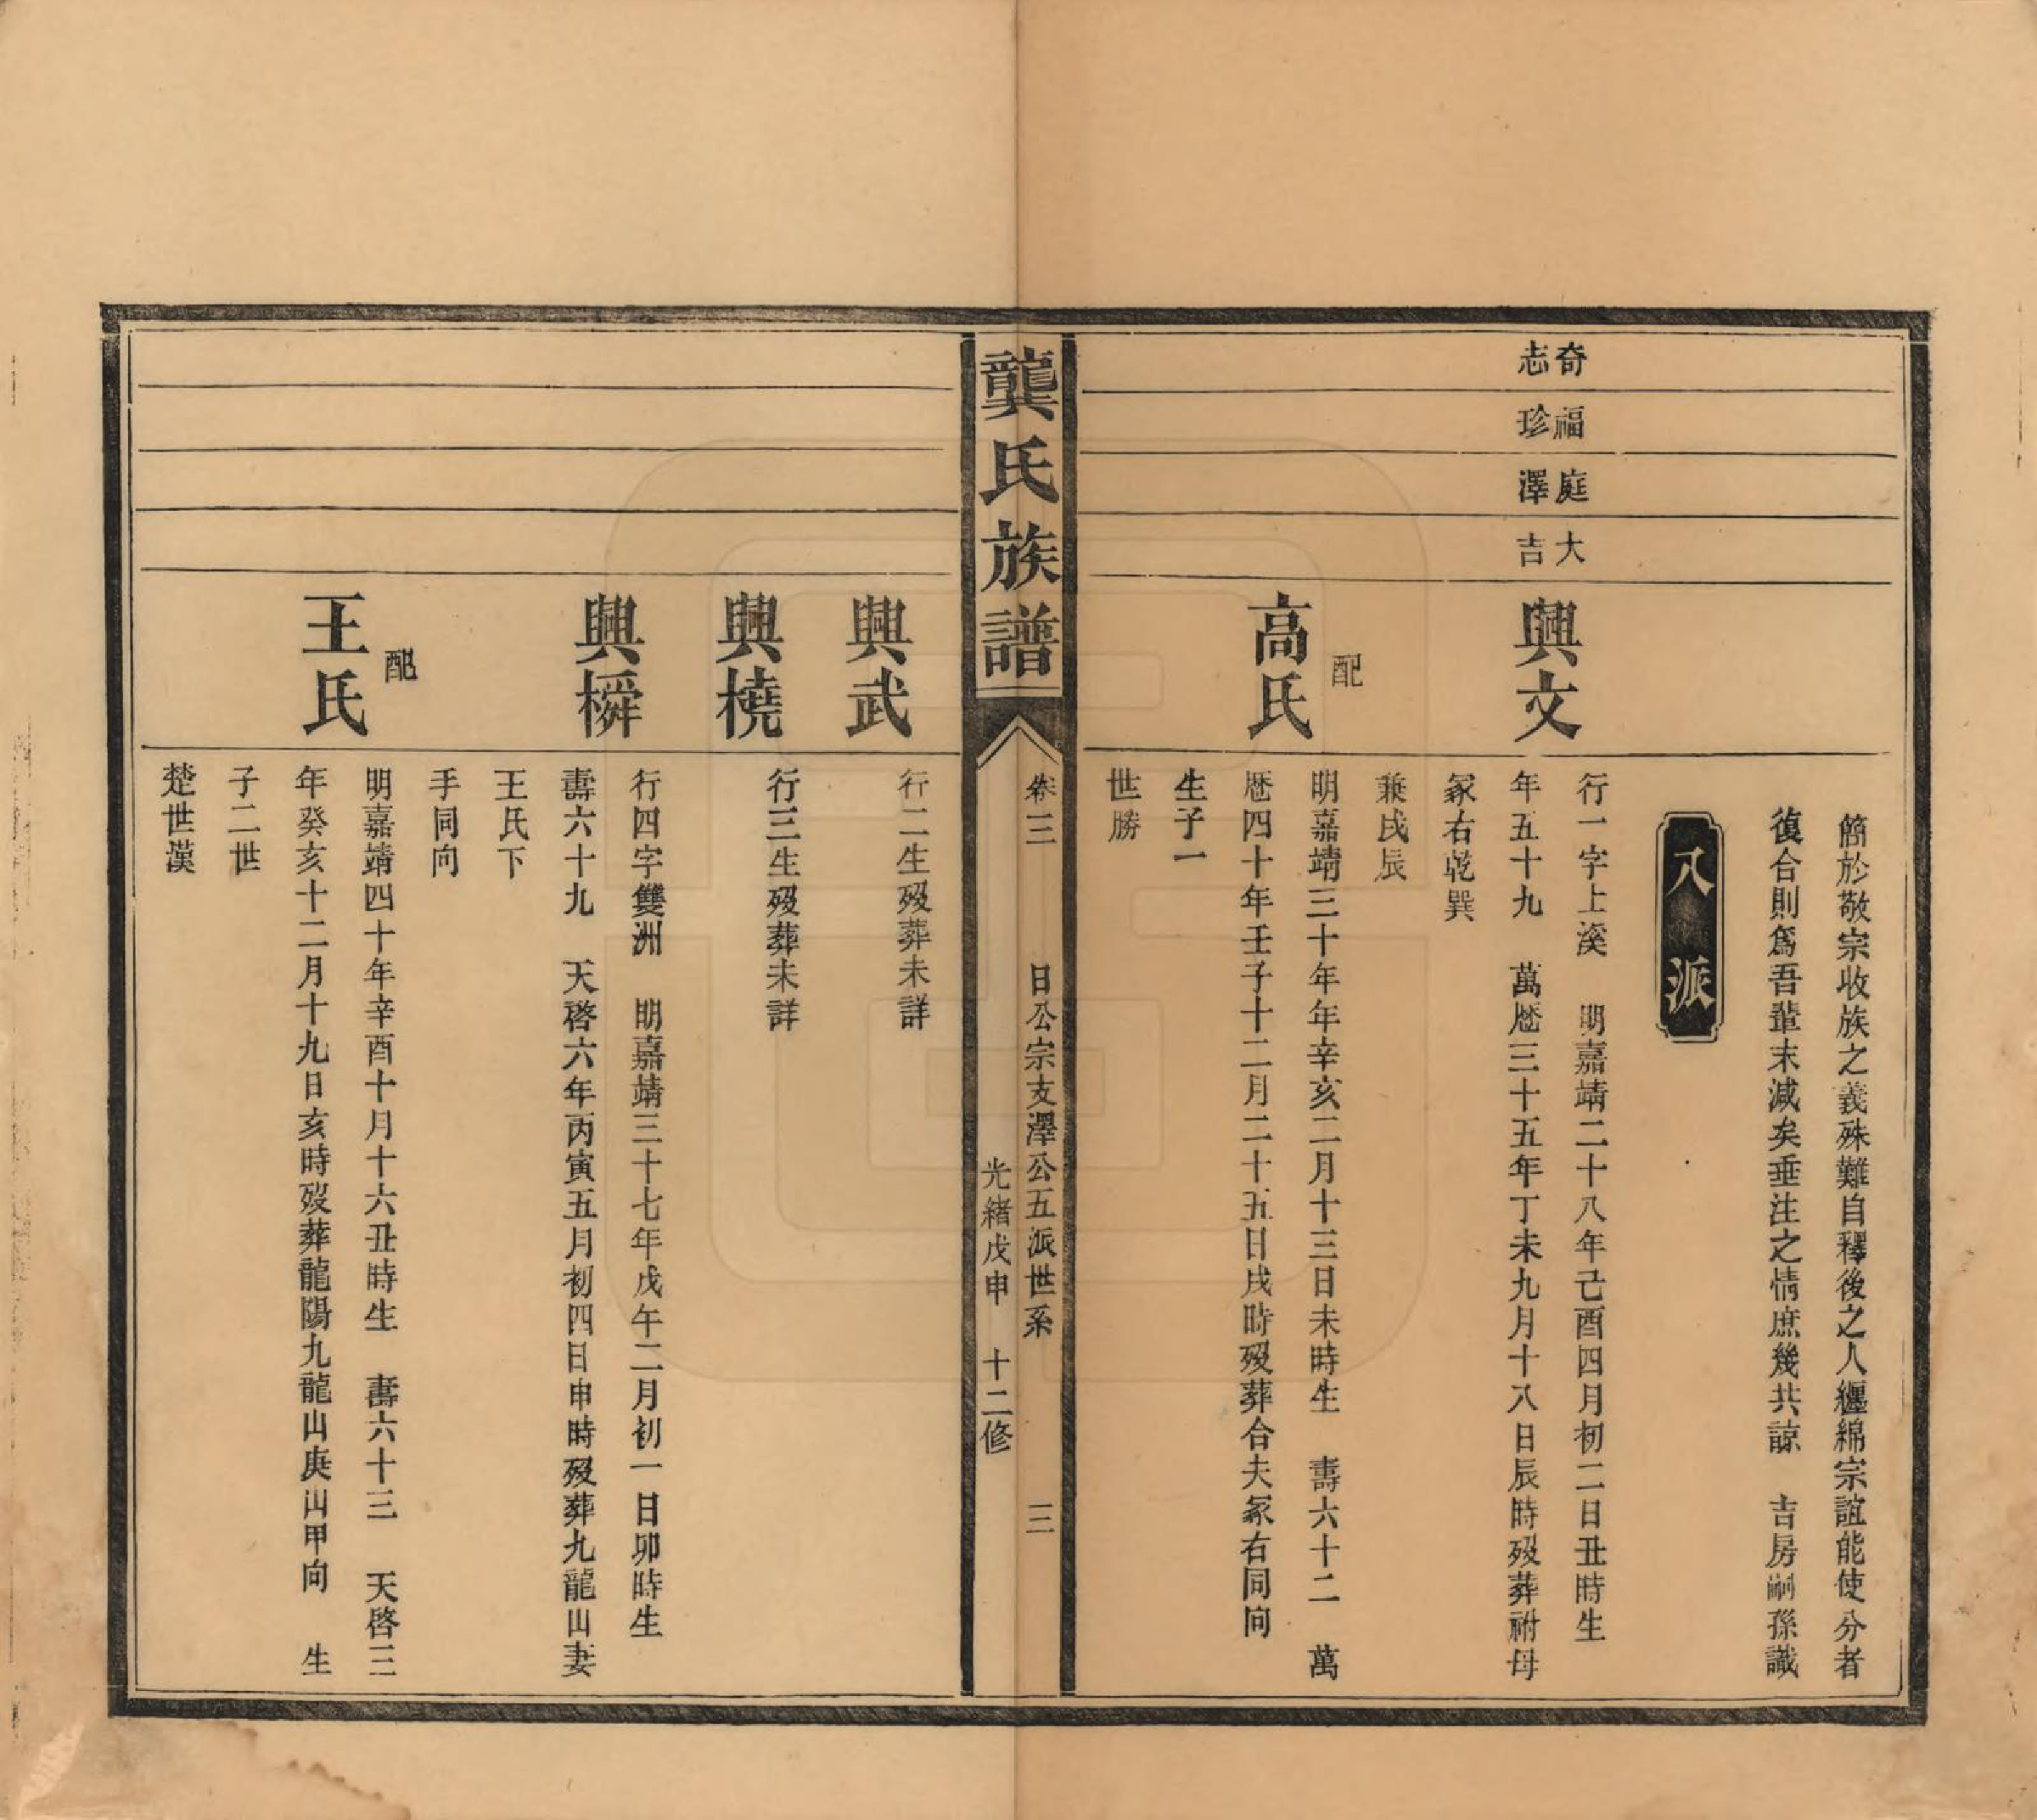 簡於敬宗收族之義殊難自釋後之人纏綿宗誼能使分者
復合則爲吾輩末減矣垂注之情庶幾共諒　吉房嗣孫識
八派
奇
志
福
珍
庭
澤
大
吉
興文
行一字上溪　明嘉靖二十八年己酉四月初二日丑時生
年五十九　萬歷三十五年丁未九月十八日辰時歿葬祔母
冢右乾巽
兼戌辰
配
高氏
明嘉靖三十年年辛亥二月十三日未時生　壽六十二　萬
歷四十年壬子十二月二十五日戌時歿葬合夫冢右同向
生子一
世勝
龔氏族譜
卷三　日公宗支澤公五派世系　三
光緒戊申　十二修
興武
行二生歿葬未詳
興橈
行三生歿葬未詳
興橓
行四字雙洲　明嘉靖三十七年戊午二月初一日卯時生
壽六十九　天啓六年丙寅五月初四日申時歿葬九龍山妻
王氏下
手同向
配
王氏
明嘉靖四十年辛酉十月十六丑時生　壽六十三　天啓三
年癸亥十二月十九日亥時歿葬龍陽九龍山庚山甲向　生
子二世
楚世漢